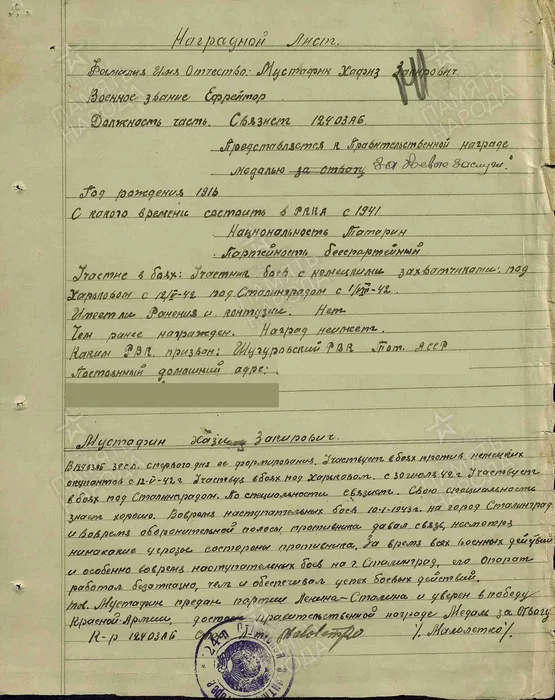 Наградной Лист.
Фамилия Имя Отчество: Мустафин Хафиз Закирович.
Военное звание Ефрейтор.
Должность часть. Связист 124 ОЗАБ.
Представляется к Правительственной награде
медалью за отвагу "За боевые заслуги."
Год рождения 1916
С какого времени состоить в РККА с 1941
Национальность Татарин
Партейность беспартейный
Участие в боях: Участник боев с немецкими захватчиками под
Харьковом с 12/V-42 под Сталинградом с -42.
Имеетли Ранения и контузии. Нет
Чем ранее награжден. Наград неимеет.
Каким РВК призван: Шугуровский РВК Тат. АССР
Постоянный домашний адре:
Мустафин Закирович.
с первого дня ее формирования. Участвует в боях против немецких
окупантов с 12-V-42 г Участвуя в боях под Харьковом. с 30 июля 42 г Участвует
в боях под Сталинградом. По специальности связист. Свою специальность
знает хорошо. Вовремя наступательных боев 10-1-1943 г. на город Сталинград
и вовремя оборонительной полосы противника давал связь, несмотря
нинакакие угрозы состороны противника. За время всех военных действий
и особенно вовремя наступательных боев на г. Сталинград, его опарат
работал безатказно, чем и обеспечивал успех боевых действий.
тов. Мустафин предан портии Ленина-Сталина и уверен в победу
Красной-Армии. достоен правительственной награде Медаль за Отвагу
К-р 124 ОЗАБ /Малолетко/.
ПАМЯТЬ НАРОДА